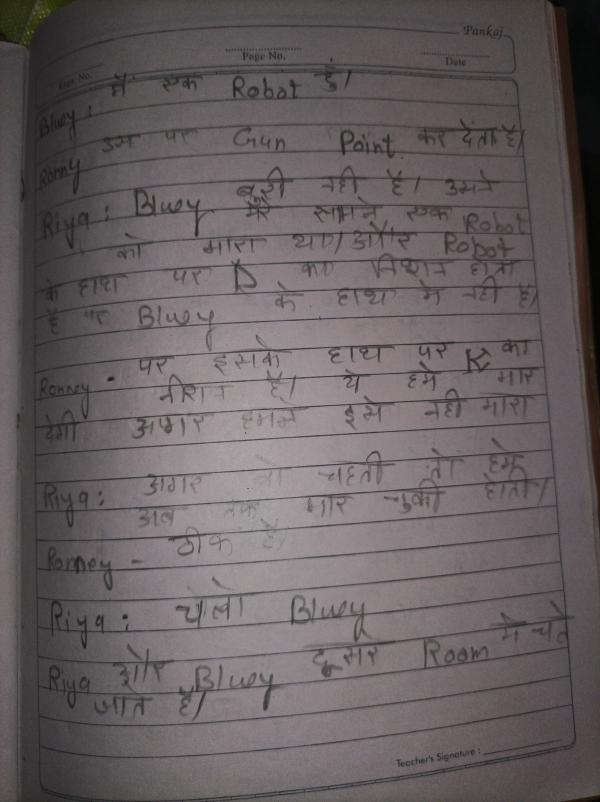 Pankaj
Page No.
Date
Bluey: मैं एक Robot हूँ।
Ronny उस पर Gun Point कर देता है।
Riya: Bluey बुरी नही है। उसने
मेरे सामने एक Robot
को मारा था। और Robot
के हाथ पर का निशान होता
है पर Bluey के हाथ मे नही है।
Ronney - पर इसके हाथ पर K का
नीशान है। ये हमे मार
देगी अगर हमने इसे नही मारा
Riya: अगर वो चहती तो हमे
अब तक मार चुकी होती।
Ronney - ठीक है
Riya: चलो Bluey
Riya और Bluey दूसरे Room मे चले
जाते है।
Teacher's Signature :